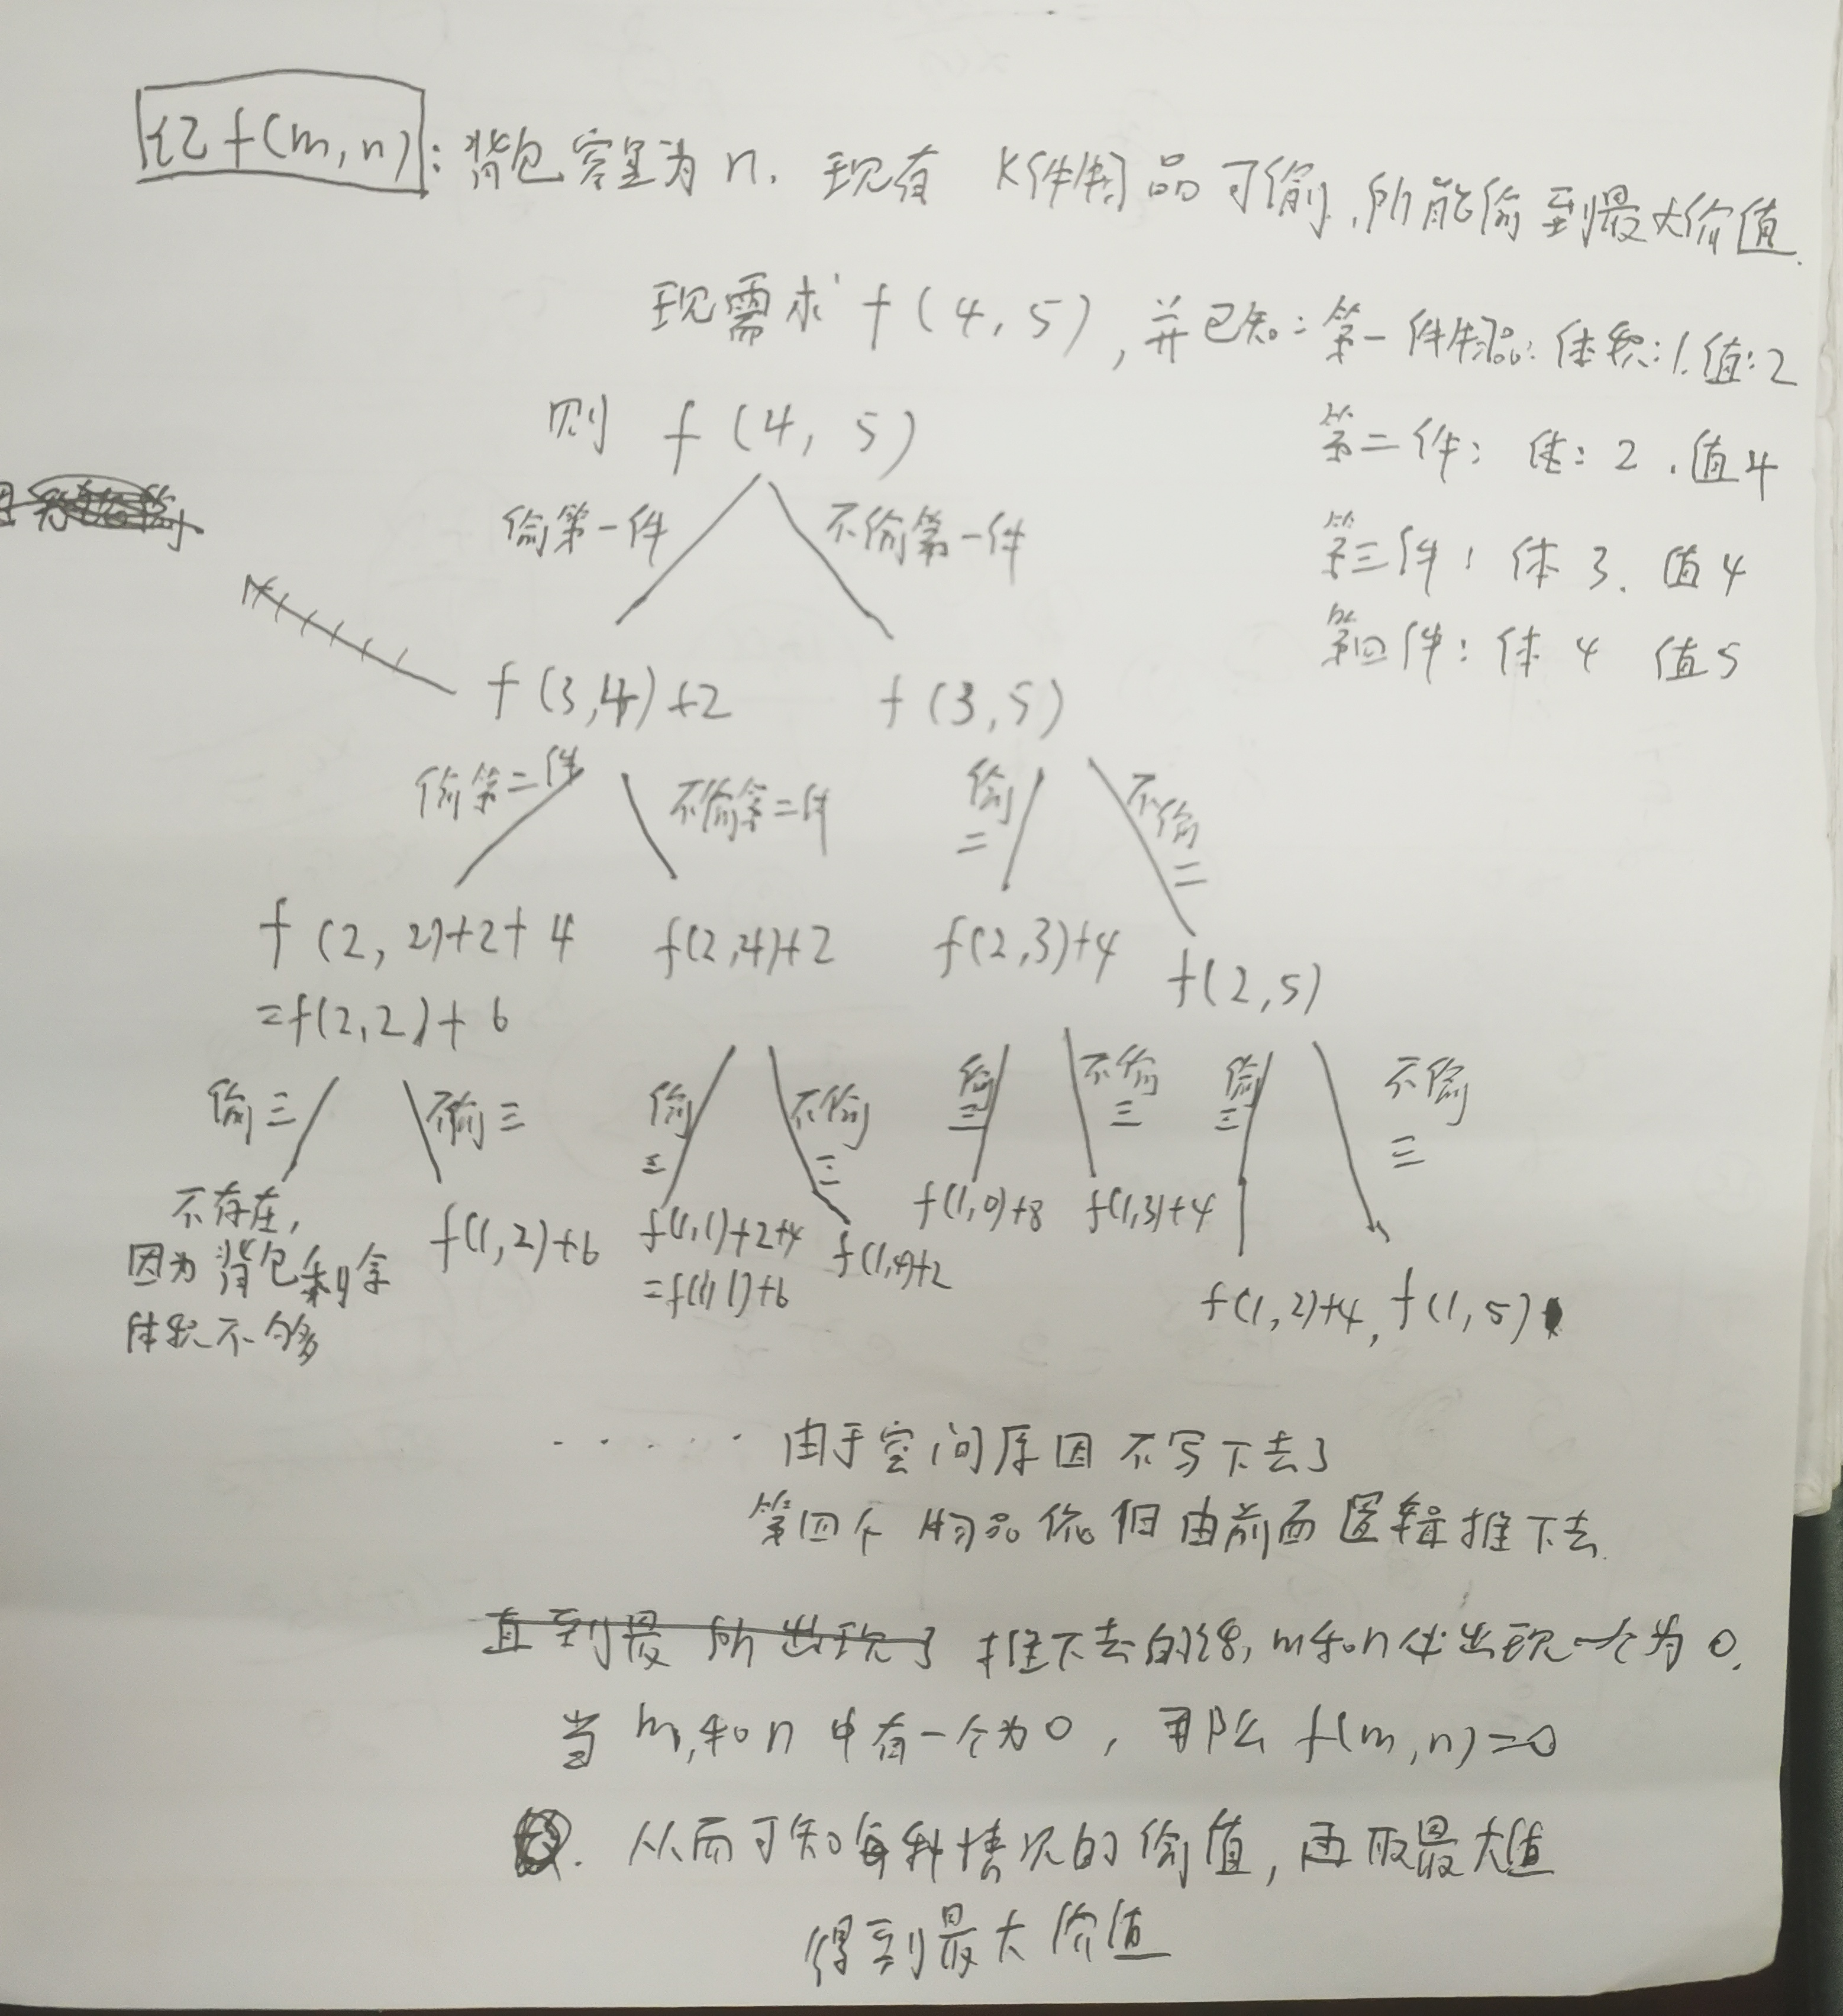 记f(m,n): 背包容量为n. 现有 K件物品可偷,所能偷到最大价值.
现需求 f(4,5),并已知:第一件物品:体积:1.值:2
则 f(4,5)
第二件: 体:2.值4
偷第一件 不偷第一件
第三件: 体3. 值4
第四件: 体4 值5
f(3,4)+2 f(3,5)
偷第二件 不偷第二件 偷二 不偷二
f(2,2)+2+4 f(2,4)+2 f(2,3)+4 f(2,5)
=f(2,2)+6
偷三 不偷三 偷三 不偷三 偷三 不偷三 偷三 不偷三
不存在, f(1,2)+6 f(1,1)+2+4 f(1,4)+2 f(1,0)+8 f(1,3)+4
因为背包剩余 =f(1,1)+6 f(1,2)+4, f(1,5)
体积不够
····· 由于空间原因不写下去了
第四个物品依旧由前面逻辑推下去.
直到最 所出现了 推下去的话,m和n必出现一个为0.
当m,和n中有一个为0,那么f(m,n)=0
从而可知每种情况的价值,再取最大值
得到最大价值